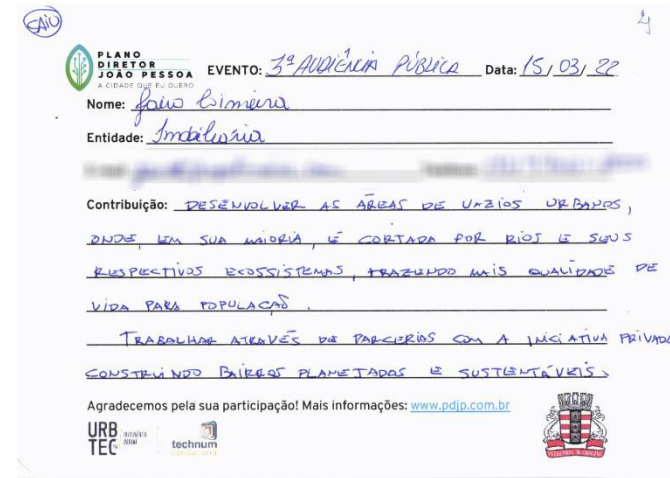 SAIU
PLANO
DIRETOR
JOÃO PESSOA
A CIDADE QUE EU QUERO
EVENTO: 3ª AUDIÊNCIA PÚBLICA Data: 15/03/22
Nome:
Entidade: Imobiliária
Contribuição: DESENVOLVER AS ÁREAS DE VAZIOS URBANOS,
ONDE, EM SUA MAIORIA, É CORTADA POR RIOS E SEUS
RESPECTIVOS ECOSSISTEMAS, TRAZENDO MAIS QUALIDADE DE
VIDA PARA POPULAÇÃO.
TRABALHAR ATRAVÉS DE PARCERIAS COM A INICIATIVA PRIVADA
CONSTRUINDO BAIRROS PLANEJADOS E SUSTENTÁVEIS.
Agradecemos pela sua participação! Mais informações: www.pdjp.com.br
URB
TEC
technum